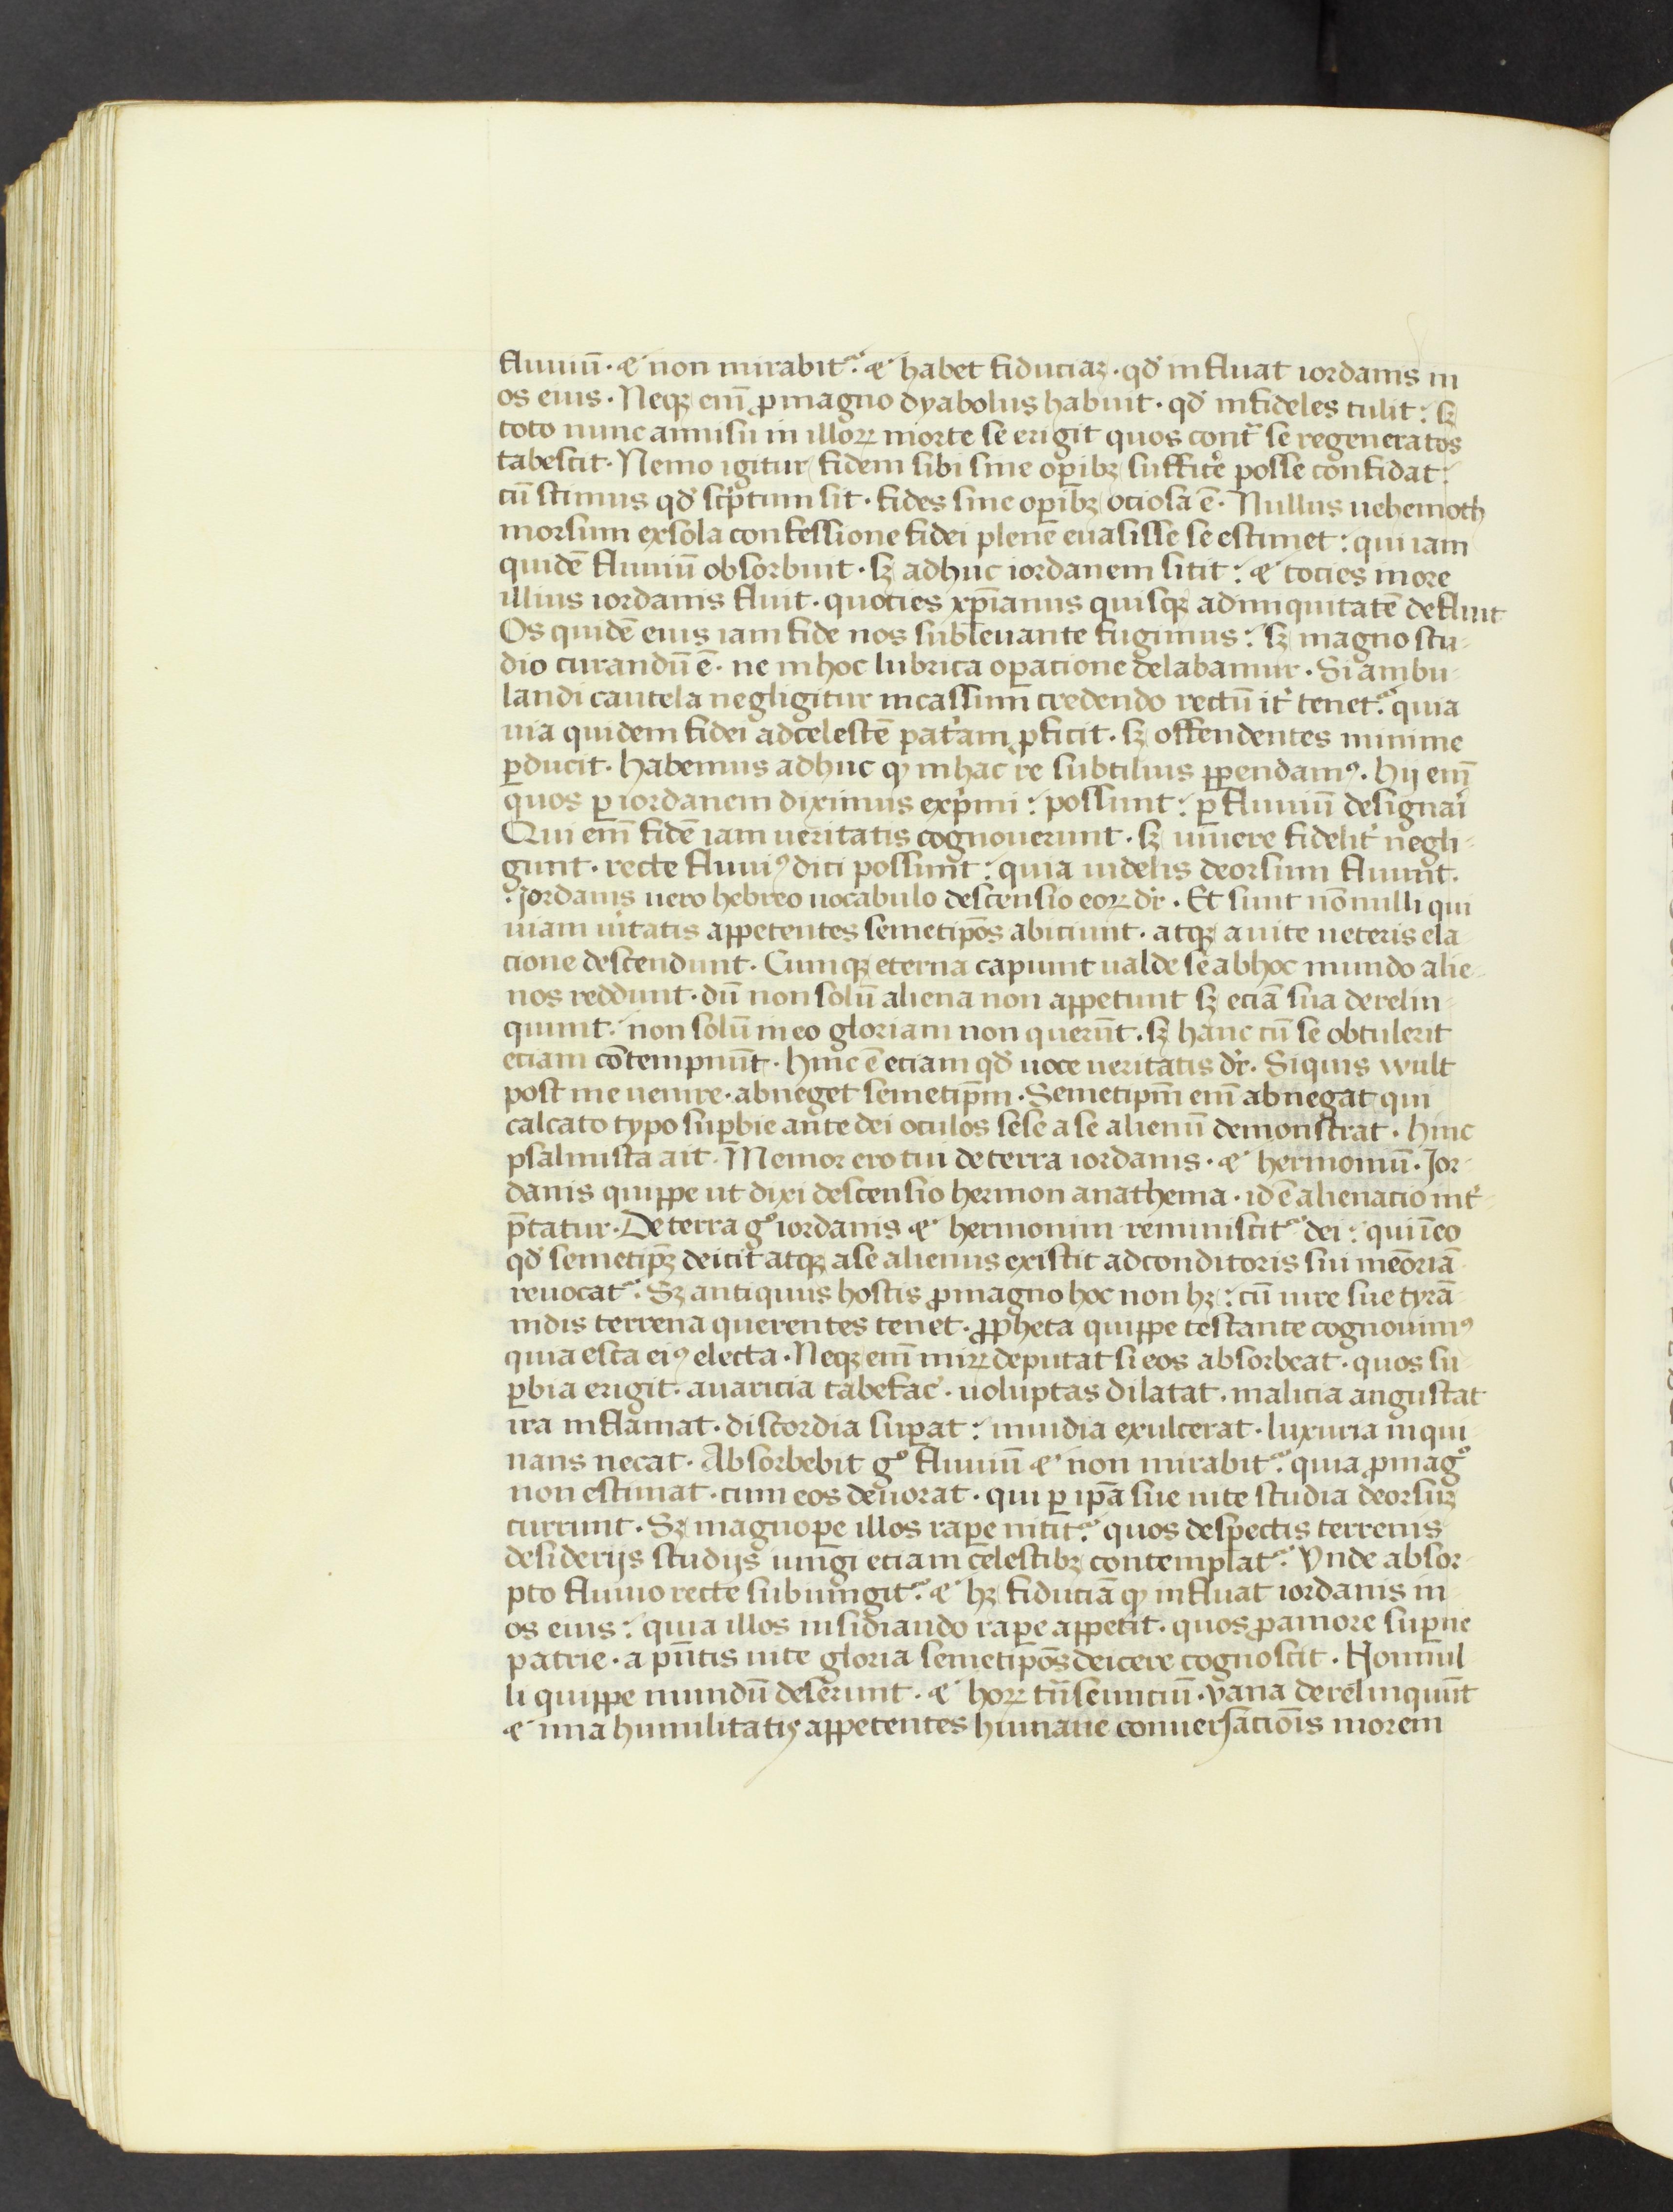 fluuiū · ⁊ non mirabit᷑ : ⁊ habet fiduciaꝫ · qd̛ influat iordanis in
os eius · Neqꝫ em̄ ꝓ magno dyabolus habuit · qd̛ infideles tulit : sꝫ
toto nunc annisu in illoꝝ morte se erigit quos cont᷑ se regeneratos
tabescit · Nemo igitur fidem sibi sine oꝑibꝫ suffice᷑ posse confidat :
cū scimus qd̛ sc̛ptum sit · fides sine oꝑibꝫ ociosa ē · Nullus uehemoth
morsum ex sola confessione fidei plene euasisse se estimet : qui iam
quidē fluuiū obsorbuit · sꝫ adhuc iordanem sitit : ⁊ tocies in ore
illius iordanis fluit · quoties xp̄ianus quisqꝫ ad iniquitatē defluit
Os quidē eius iam fide nos subleuante fugimus : sꝫ magno stu-
dio curandū ē · ne in hoc lubrica oꝑacione delabamur · Si ambu-
landi cautela negligitur incassum credendo rectū it̛ tenet᷑ : quia
uia quidem fidei ad celestē pat̛am ꝓficit · sꝫ offendentes minime
ꝑducit · Habemus adhuc ꝙ in hac re subtilius ꝑpendamꝰ · Hij em̄
quos ꝑ iordanem diximus exp̛mi : possunt : ꝑ fluuiū designai᷑
Qui em̄ fidē iam ueritatis cognouerunt · sꝫ uiuere fidelit̛ negli-
gunt · recte fluuiꝰ dici possunt : quia uidelis deorsum fluunt ·
Jordanis uero hebreo uocabulo descensio eoꝝ dr̄ · Et sunt nōnulli qui
uiam ưitatis appetentes semetip̄os abiciunt · atqꝫ a uite ueteris ela
cione descendunt · Cumqꝫ eterna capiunt ualde se ab hoc mundo alie-
nos reddunt · dū non solū aliena non appetunt sꝫ eciā sua derelin-
quunt : non solū in eo gloriam non querūt · sꝫ hanc cū se obtulerit
eciam cōtempnūt · Hinc ē eciam qd̛ uoce ueritatis dr̄ · Siquis wult
post me uenire · abneget semetip̄m · Semetip̄m em̄ abnegat qui
calcato typo suꝑbie ante dei oculos sese a se alienū demonstrat · Hinc
psalmista ait · Memor ero tui de terra iordanis · ⁊ hermoniū · Jor-
danis quippe ut dixi descensio hermon anathema · id ē alienacio int̛-
p̄tatur · De terra gͦ iordanis ⁊ hermonim reminiscit᷑ dei : qui ī eo
qd̛ semetip̄ꝫ deicit atqꝫ a se alienus existit ad conditoris sui meōriā
reuocat᷑ : Sꝫ antiquus hostis ꝓ magno hoc non hꝫ : cū iure sue tyrā
nidis terrena querentes tenet · ꝓpheta quippe testante cognouimꝰ
quia esca eiꝰ electa · Neqꝫ em̄ miꝝ deputat si eos absorbeat · quos su-
ꝑbia erigit · auaricia tabefac̛ · uoluptas dilatat · malicia angustat
ira inflāmat · discordia suꝑat : inuidia exulcerat · luxuria inqui-
nans necat · Absorbebit gͦ fluuiū ⁊ non mirabit᷑ : quia ꝓ magͦ
non estimat · cum eos deuorat · qui ꝑ ip̄a sue uite studia deorsuꝫ
currunt · Sꝫ magnoꝑe illos raꝑe nitit᷑ : quos despectis terrenis
desiderijs studijs iungi eciam celestibꝫ contemplat᷑ : Vnde absor-
pto fluuio recte subiungit᷑ : ⁊ hꝫ fiduciā ꝙ influat iordanis in
os eius : quia illos insidiando raꝑe appetit · quos ꝓ amore suꝑne
patrie · a pn̄tis uite gloria semetip̄os deicere cognoscit · Nonnul-
li quippe mundū deserunt · ⁊ horꝝ tn̄seunciū · vana derelinquūt
⁊ ima humilitatis appetentes humane conuersacionis morem